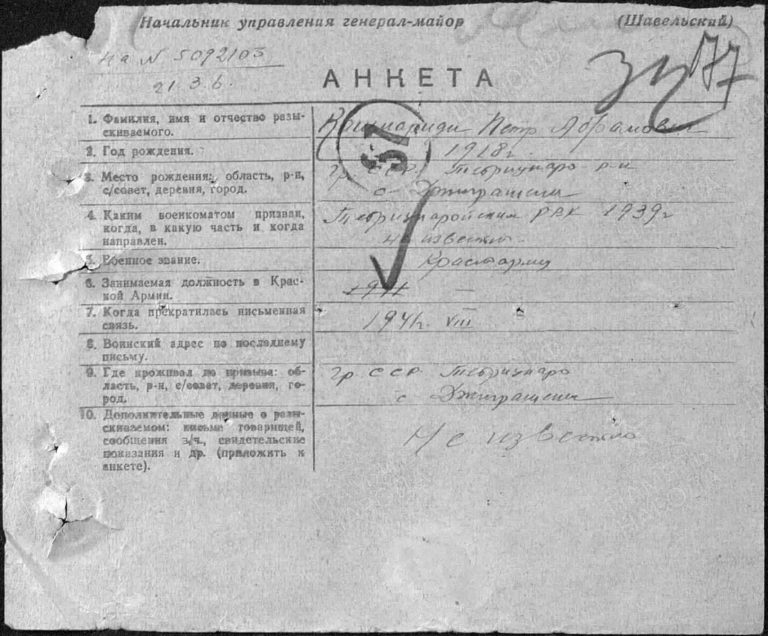 Начальник управления генерал-майор (Шавельский)
На N 5092103
21 3 6.
АНКЕТА
1. Фамилия, имя и отчество разы-
скиваемого.
Петр Абрамович
2. Год рождения.
1918г.
3. Место рождения: область, р-н,
с/совет, деревня, город.
Гр. ССР. р-н
с Джиграшени
4. Каким военкоматом призван,
когда, в какую часть и когда
направлен.
РВК 1939г
не известно
5. Военное звание.
Красноармц
6. Занимаемая должность в Крас-
ной Армии.
1941 —
7. Когда прекратилась письменная
связь.
1941г. VIII
8. Воинский адрес по последнему
письму.
9. Где проживал до призыва: об-
ласть, р-н, с/совет, деревня, го-
род.
гр ССР
с Джиграшени
10. Дополнительные данные о разы-
скиваемом: письма товарищей,
сообщения в/ч., свидетельские
показания и др. (приложить к
анкете).
Не известно